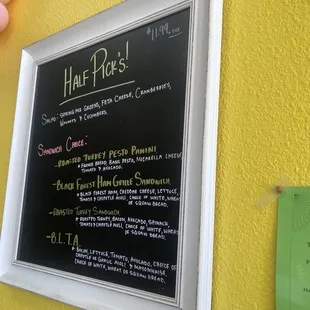 $11.99 +TAX
HALF PICK'S!
SALAD: SPRING MIX GREENS, FETA CHEESE, CRANBERRIES,
WALNUTS & CUCUMBERS.
SANDWICH CHOICE:
- ROASTED TURKEY PESTO PANINI
* FRENCH BREAD, BASIL PESTO, MOZARELLA CHEESE
TOMATO & AVOCADO.
- BLACK FOREST HAM GRILLE SANDWICH
* BLACK FOREST HAM, CHEDDAR CHEESE, LETTUCE,
TOMATO & CHIPOTLE AIOLI, CHOICE OF WHITE, WHEAT
OR SQUAW BREAD.
- ROASTED TURKEY SANDWICH
* ROASTED TURKEY, BACON, AVOCADO, SPINACH,
TOMATO & CHIPOTLE AIOLI, CHOICE OF WHITE, WHEAT
OR SQUAW BREAD.
- B.L.T.A.
* BACON, LETTUCE, TOMATO, AVOCADO, CHOICE
OF CHIPOTLE OR GARLIC AIOLI & MAYONNAISE,
CHOICE OF WHITE, WHEAT OR SQUAW BREAD.